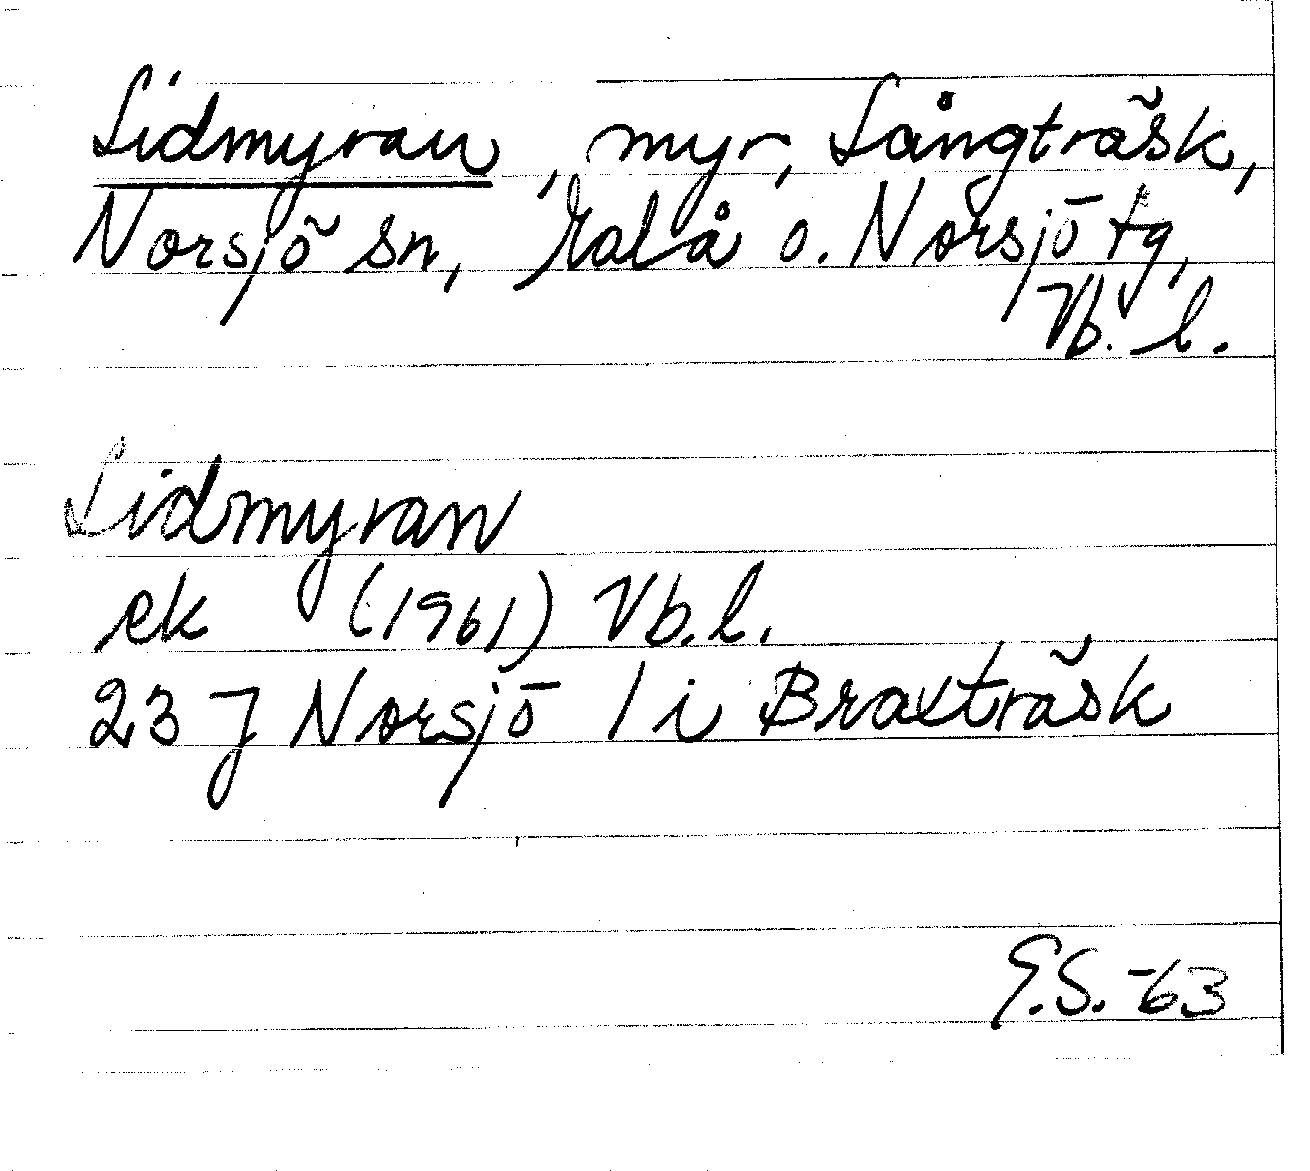 Lidmyran, myr, Långträsk,
Norsjö sn, Malå o. Norsjö tg,
Vb. l.
Lidmyran
ek (1961) Vb. l.
23 J Norsjö 1 i Braxträsk
G.S. -63